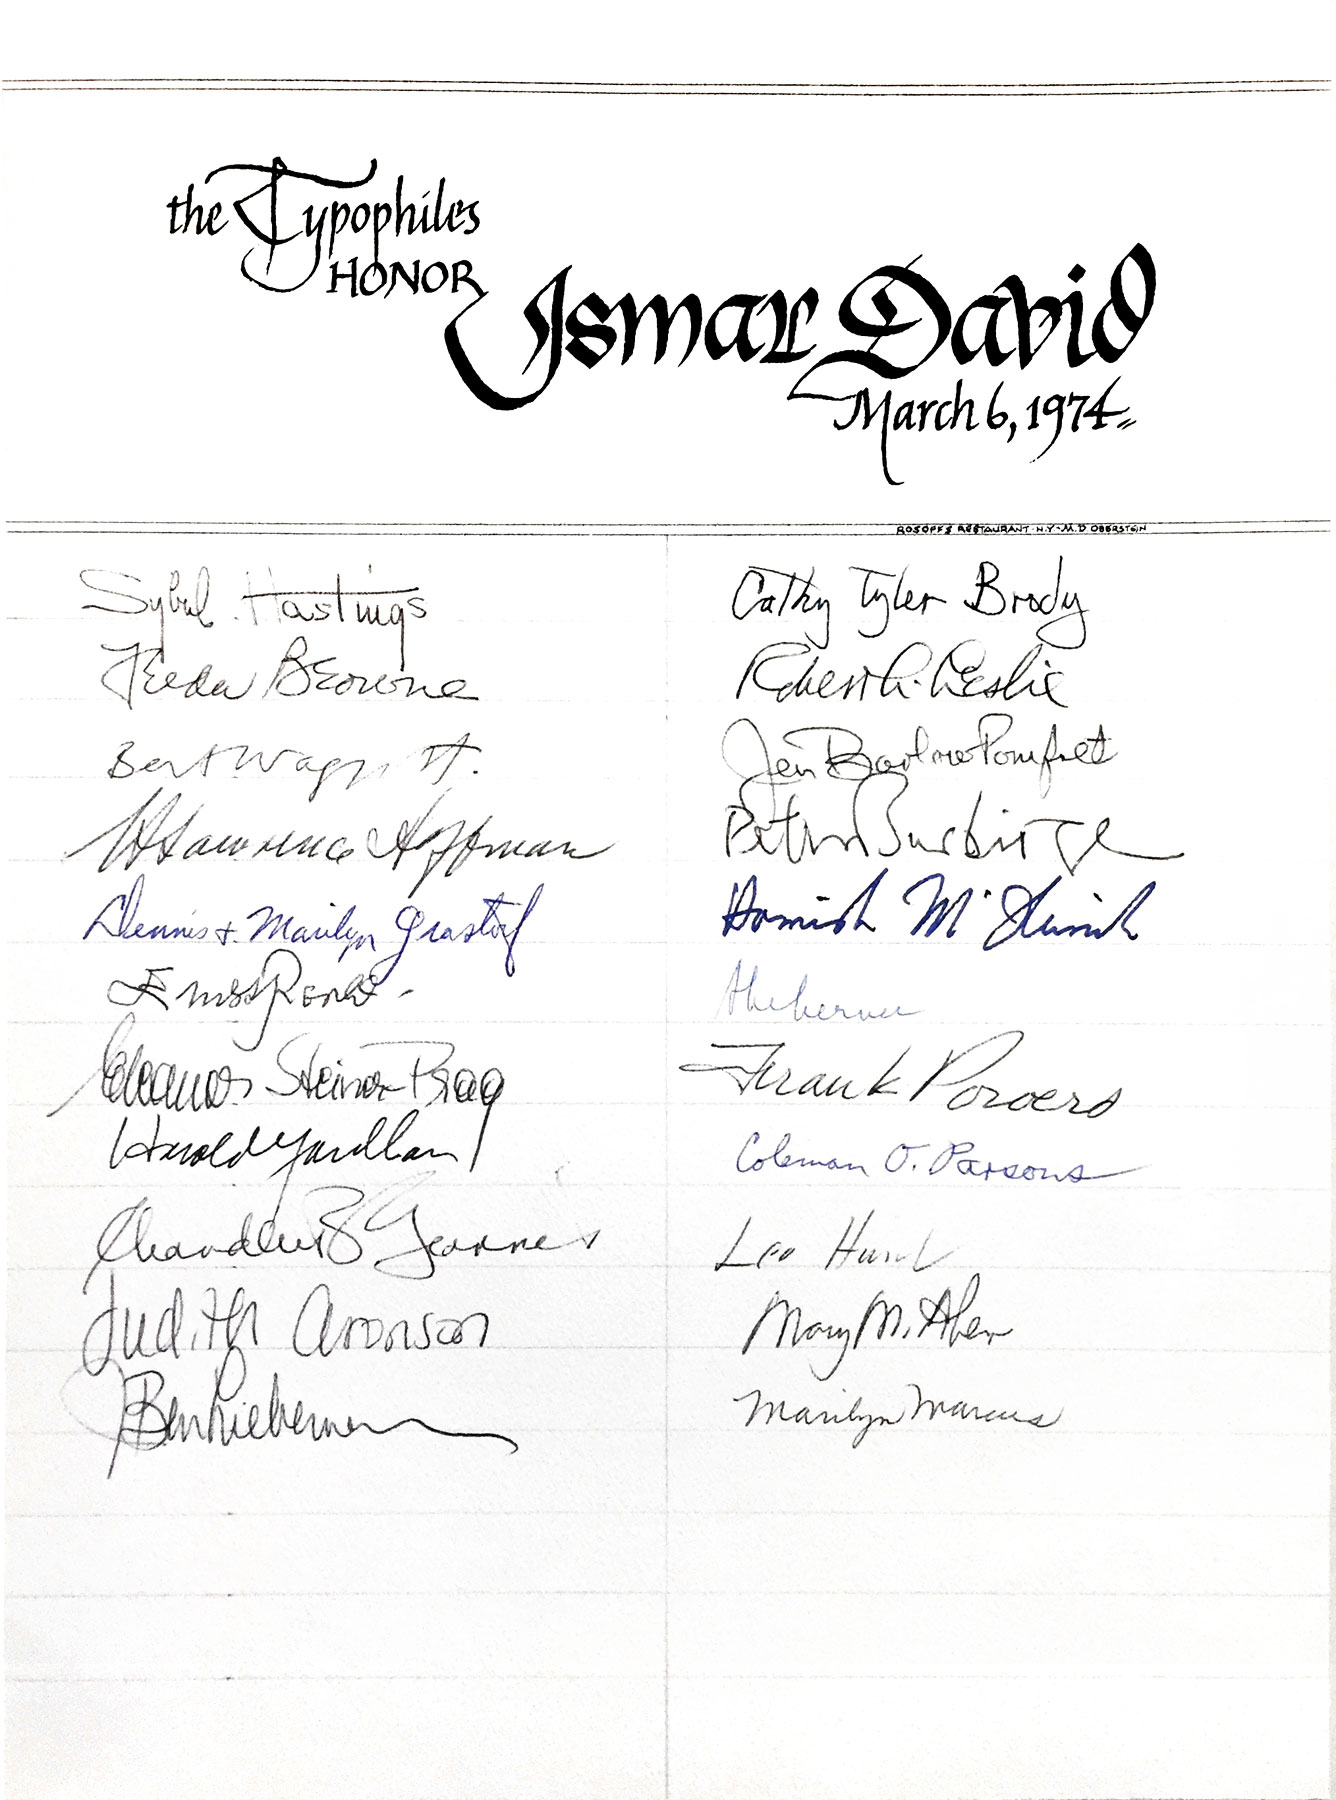 the Typophiles
HONOR
Ismar David
March 6, 1974
ROSOFFS RESTAURANT · N.Y. - M.D OBERSTEIN
Sybil Hastings
Freda Browne
Bert
H Lawrence Hoffman
Dennis & Marilyn Grastorf
Eleanor Steiner-Prag
Harold
Chandler B Grannis
Judith Aronson
Ben Lieberman
Cathy Tyler Brody
Robert L. Leslie
Jeri Barlow Pomfret
Peter Burbidge
Hamish
Abe Lerner
Frank Powers
Coleman O. Parsons
Leo
Mary M. Ahern
Marilyn Marcus